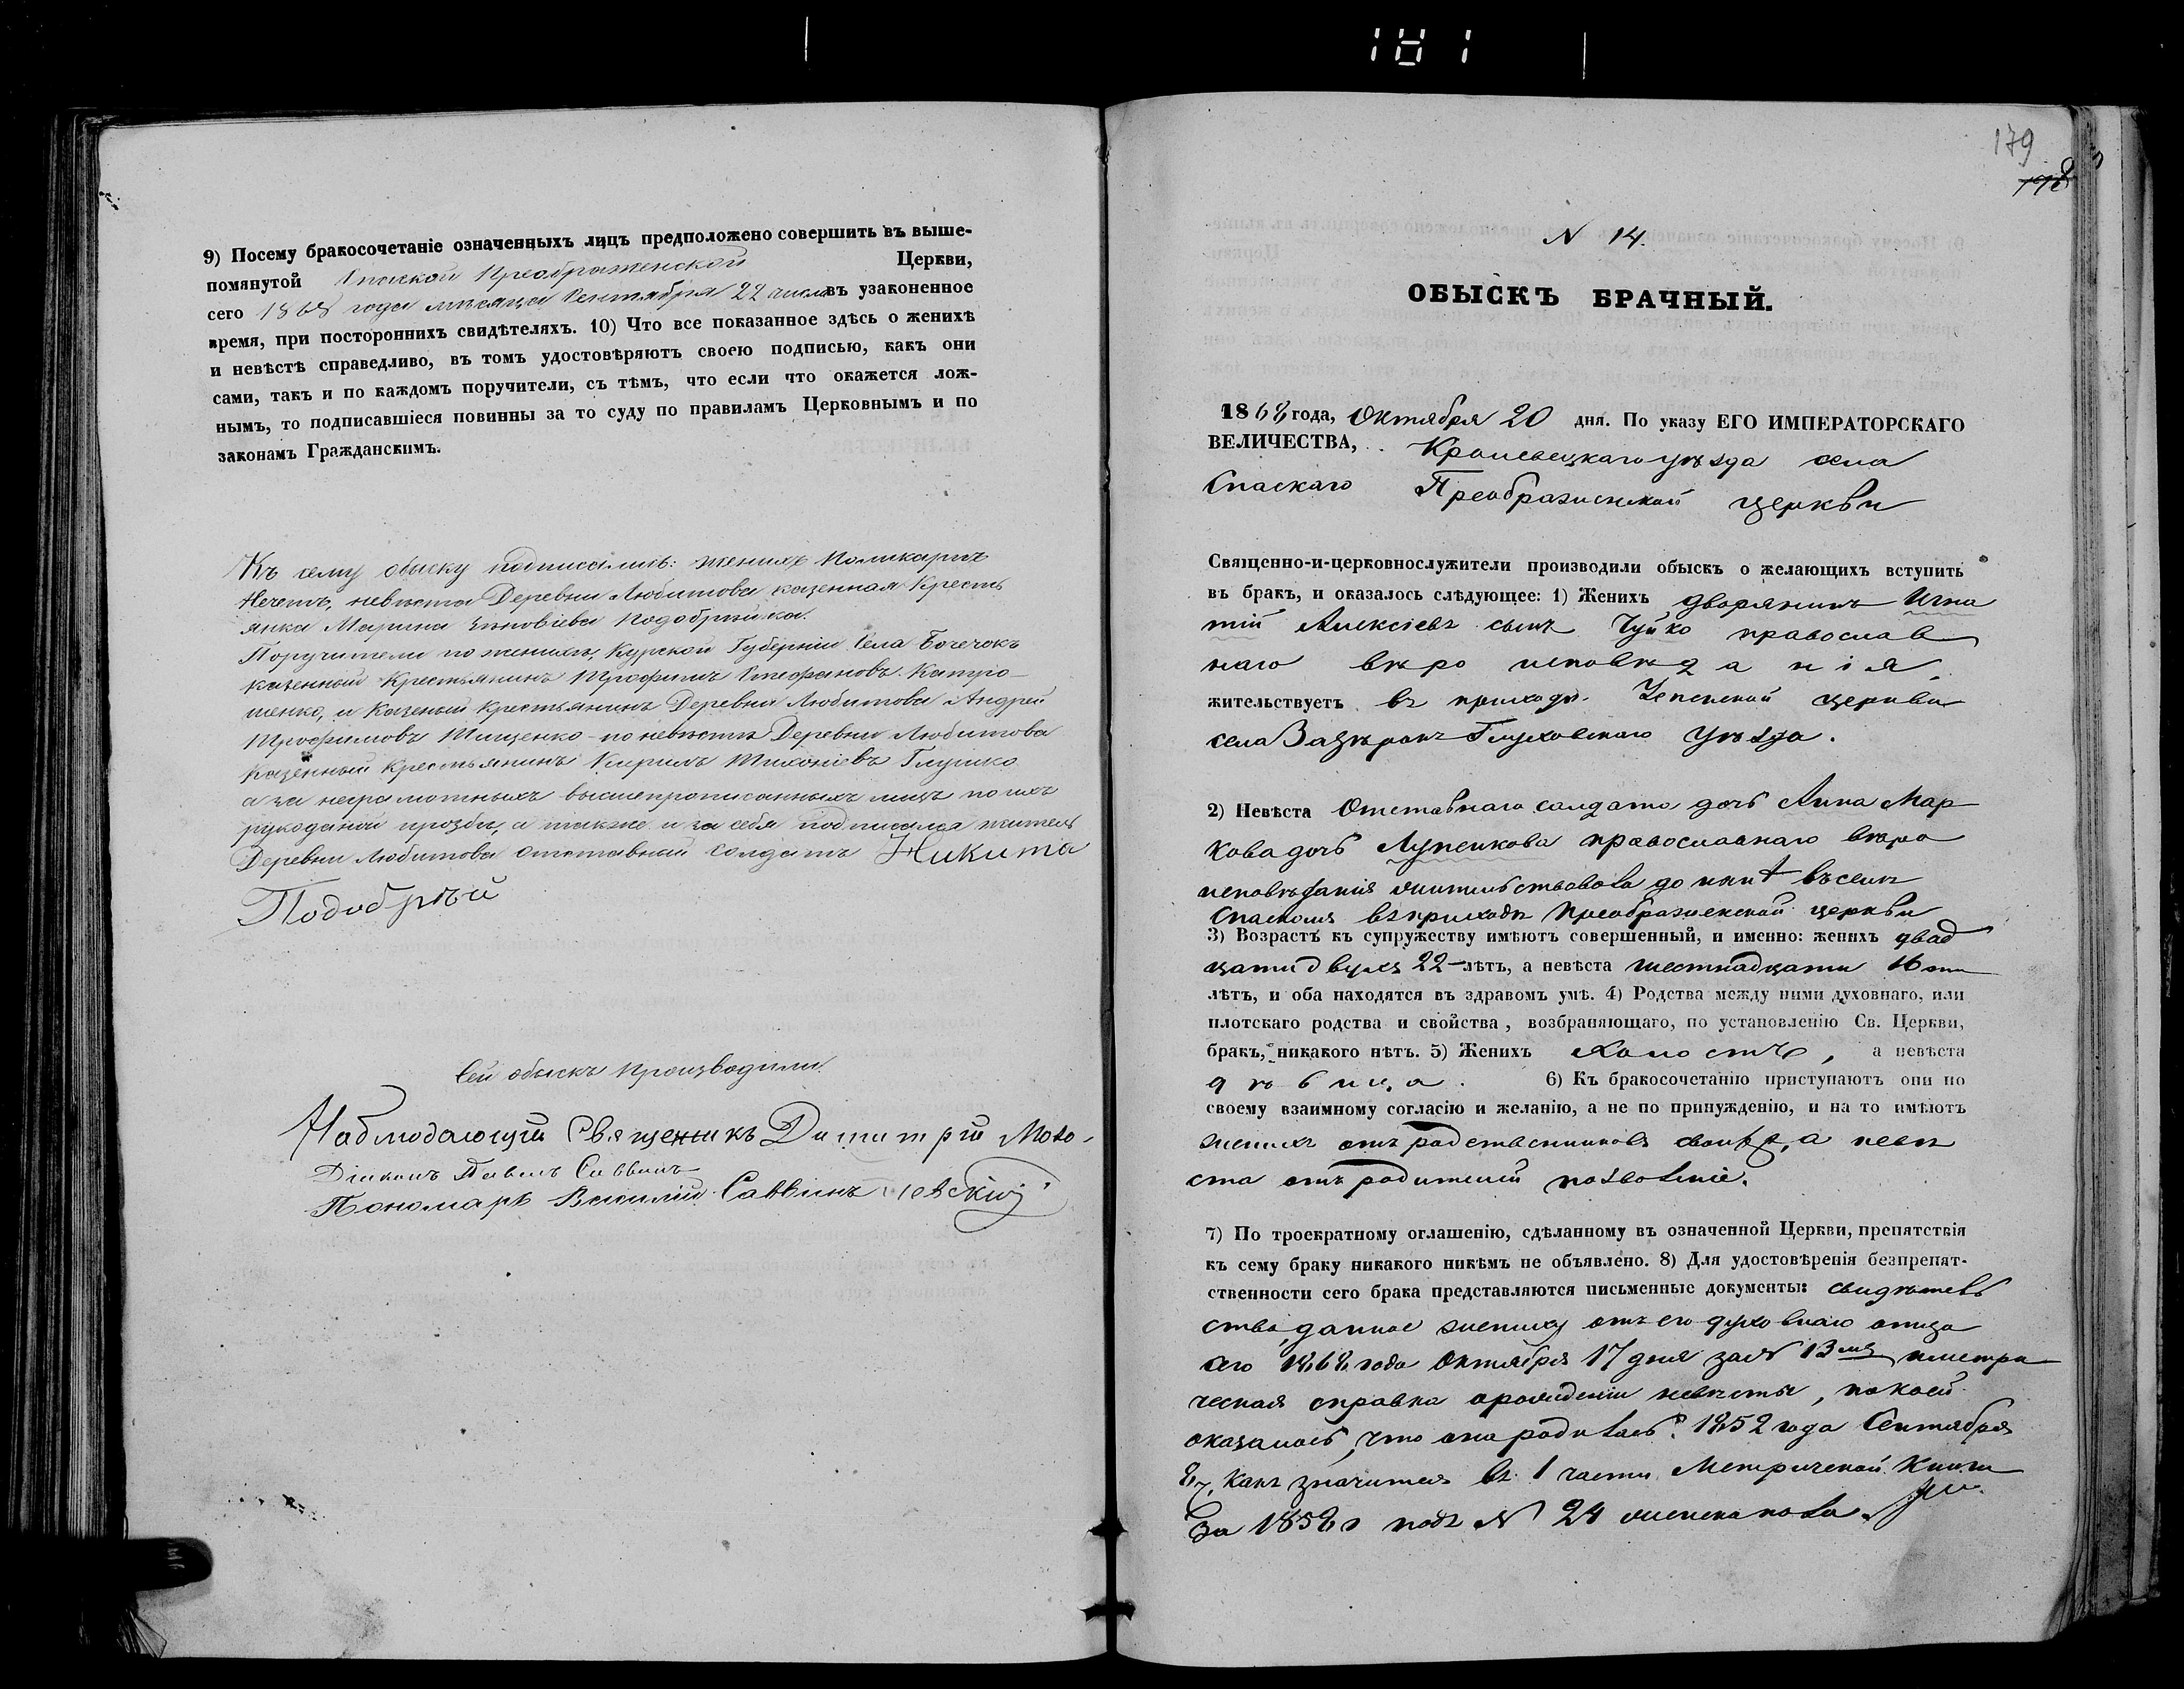 181
9) Посему бракосочетаніе означенныхъ лицъ предположено совершить въ выше-
помянутой Спаской Преображенской Церкви,
сего 1868 года мѣсяца Сентября 22 числа въ узаконенное
время, при постороннихъ свидѣтеляхъ. 10) Что все показанное здѣсь о женихѣ
и невѣстѣ справедливо, въ томъ удостовѣряютъ своею подписью, какъ они
сами, такъ и по каждомъ поручители, съ тѣмъ, что если что окажется лож-
нымъ, то подписавшіеся повинны за то суду по правиламъ Церковнымъ и по
законамъ Гражданскимъ.
Къ сему обыску подписались: женихъ Поликарпъ
Нечетъ, невѣста Деревни Любитова казенная Кресть
янка Марина Зиновіева Подобрѣйка.
Поручители по женихѣ, Курской Губерніи Села Бочечокъ
казенный Крестьянинъ Трофимъ Стефановъ
и Казеный Крестьянинъ Деревни Любитова Андрей
Трофимовъ Тищенко - по невѣстѣ Деревни Любитова
Казенный Крестьянинъ Кирилъ Тихоніевъ Глушко
а за неграмотныхъ вышепрописанныхъ лицъ по ихъ
рукоданой прозбѣ, а также и за себя подписался житель
Деревни Любитова отставный солдатъ Никита
Подобрѣй
Сей обыскъ производили:
Наблюдающій Священикъ Димитрій Мохо-
Діаконъ Павелъ Саввинъ
Пономарь Василій Саввинъ евскій
179
N 14.
ОБЫСКЪ БРАЧНЫЙ.
1868 года, Октября 20 дня. По указу ЕГО ИМПЕРАТОРСКАГО
ВЕЛИЧЕСТВА, Кролевецкаго уѣзда села
Спаскаго Преображенской церкви
Священно-и-церковнослужители производили обыскъ о желающихъ вступить
въ бракъ, и оказалось слѣдующее: 1) Женихъ дворянинъ Игна
тій Алексіевъ сынъ Чуйко православ
наго вѣро исповѣданія
жительствуетъ въ приходѣ Успенской церкви
села Зазѣрокъ Глуховскаго Уѣзда.
2) Невѣста Отставнаго салдата дочь Анна Мар
кова дочь Лупенкова православнаго вѣро
исповѣданія жительствовала до нынѣ въ селѣ
Спаскомъ въ приходѣ Преображенской церкви
3) Возрастъ къ супружеству имѣютъ совершенный, и именно: женихъ двад
цати двухъ 22 лѣтъ, а невѣста шестнадцати 16ти
лѣтъ, и оба находятся въ здравомъ умѣ. 4) Родства между ними духовнаго, или
плотскаго родства и свойства, возбраняющаго, по установленію Св. Церкви,
бракъ, никакого нѣтъ. 5) Женихъ холостъ, а невѣста
дѣвица. 6) Къ бракосочетанію приступаютъ они по
своему взаимному согласію и желанію, а не по принужденію, и на то имѣютъ
женихъ отъ родственниковъ своихъ, а невѣ
ста отъ родителей позволеніе.
7) По троекратному оглашенію, сдѣланному въ означенной Церкви, препятствія
къ сему браку никакого никѣмъ не объявлено. 8) Для удостовѣренія безпрепят-
ственности сего брака представляются письменные документы: свидѣтель
ство, данное жениху отъ его духовнаго отца
сего 1868 года Октября 17 дня за N 13мъ, метри
ческая справка о рожденіи невѣсты, по коей
оказалось, что она родилась 1852 года Сентября
8, какъ значится въ 1 части Метрической Книги
за 1852 г подъ N 24 женска пола.